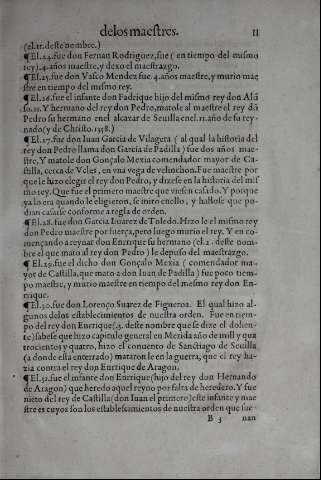 de los maestres. 11
(el.11.deste nombre.)
¶ El.24.fue don Fernan Rodriguez, fue ( en tiempo del mismo
rey).4.años maestre, y dexo el maestrazgo.
¶ El.25.fue don Vasco Mendez fue.4.años maestre, y murio mae
stre en tiempo del mismo rey.
¶ El.26.fue el infante don Fadrique hijo del mismo rey don Alõ
so.11.Y hermano del rey don Pedro, matole al maestre el rey dõ
Pedro su hermano en el alcaçar de Seuilla en el.11.año de su rey-
nado(y de Christo.1358.)
¶ El.27.fue don Iuan Garcia de Vilagera ( al qual la historia del
rey don Pedro llama don Garcia de Padilla ) fue dos años mae-
stre, Y matole don Gonçalo Mexia comendador mayor de Ca-
stilla, cerca de Vcles, en vna vega de
que le hizo elegir el rey don Pedro, y dizese en la historia del mis
mo rey. Que fue el primero maestre que viesen casado. Y porque
ya lo era quando le eligieron, se miro en ello, y hallose que po-
dian casarse conforme a regla de orden.
¶ El.28.fue don Garcia Luarez de Toledo. Hizo le el mismo rey
don Pedro maestre por fuerça, pero luego murio el rey. Y en co-
mençando a reynar don Enrrique su hermano (el.2. deste nom-
bre el que mato al rey don Pedro ) le depuso del maestrazgo.
¶ El.29.fue el dicho don Gonçalo Mexia ( comendador ma-
yor de Castilla, que mato a don Iuan de Padilla ) fue poco tiem-
po maestre, y murio maestre en tiempo del mesmo rey don En-
rrique.
¶ El.30.fue don Lorenço Suarez de Figueroa. El qual hizo al-
gunos delos establecimientos de nuestra orden. Fue en tiem-
po del rey don Enrrique(.3. deste nombre que se dize el dolien-
te)sabese que hizo capitulo general en Merida año de mill y qua
trocientos y quatro, hizo el conuento de Sanctiago de Seuilla
(a donde esta enterrado) mataron le en la guerra, que el rey ha-
zia contra el rey don Enrrique de Aragon.
¶ El.31.fue el infante don Enrrique(hijo del rey don Hernando
de Aragon) que heredo aquel reyno por falta de heredero. Y fue
nieto del rey de Castilla(don Iuan el primero)este infante y mae
stre es cuyos son los establescimientos de nuestra orden que fue-
B 3 nan